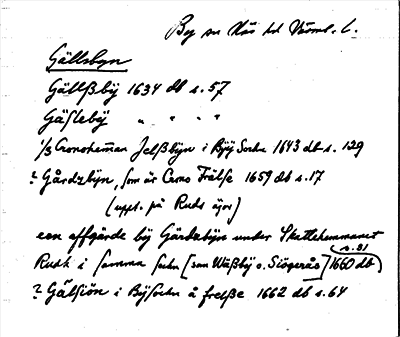 By sn Näs hd Värml. L.
Gällsbyn
Gällßbÿ 1634 db s. 57
Gäßlebÿ " " " "
1/3 Cronoheman Jelßbÿn i Bÿÿ Sochn 1643 db s. 129
? Gårdzbÿn, som är Crono Frälse 1659 db s. 17
(uppt. på Ruds ägor)
een affgärde bÿ Gärdzbÿn under Skattehemmanet
s. 81
Rudh i samma sochn [som Wäßbÿ o. Siögerås] 1660 db)
? Gälsiön i Bÿsochn å frelße 1662 db s. 64